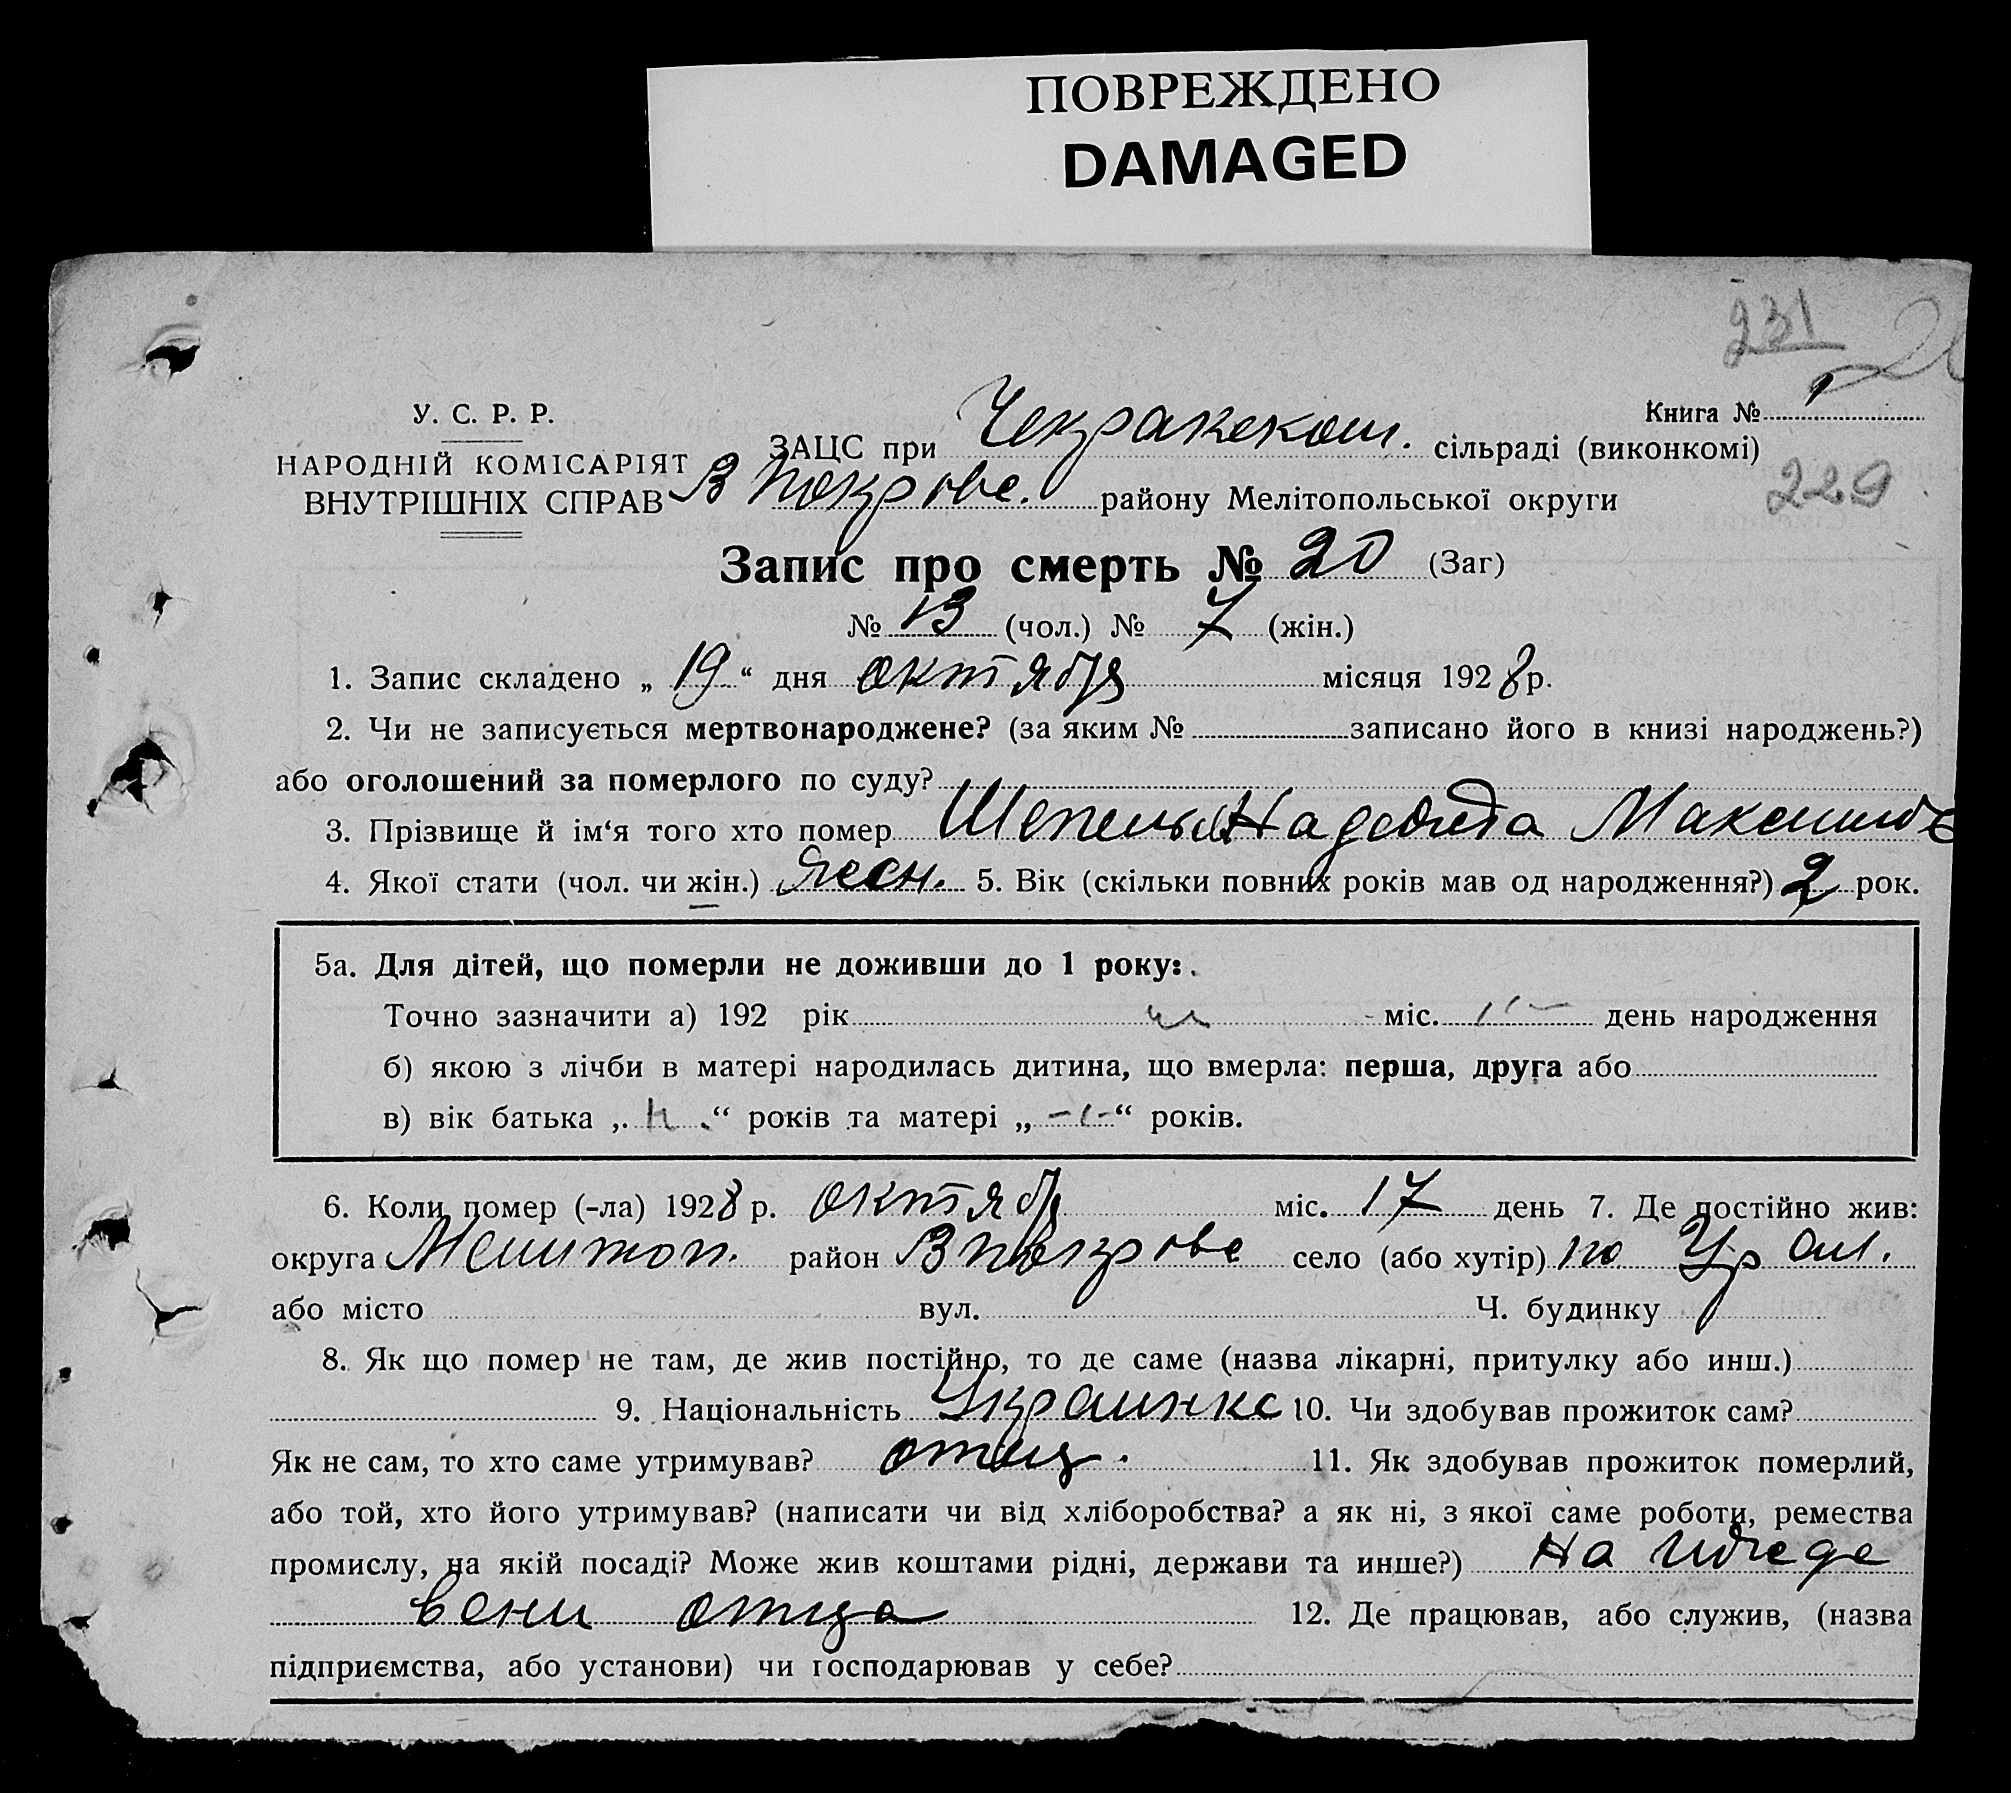 ПОВРЕЖДЕНО
DAMAGED
231
У. С. Р. Р.
НАРОДНІЙ КОМІСАРІЯТ
ВНУТРІШНІХ СПРАВ
Книга № 1
ЗАЦС при Чекракском. сільраді (виконкомі)
В Покровс. району Мелітопольської округи
229
Запис про смерть № 20 (Заг)
№ 13 (чол.) № 7 (жін.)
1. Запис складено „ 19 “ дня октября місяця 1928 р.
2. Чи не записується мертвонароджене? (за яким № записано його в книзі народжень?)
або оголошений за померлого по суду?
3. Прізвище й ім‘я того хто помер Шепель Надежда Максимов
4. Якої стати (чол. чи жін.) женн. 5. Вік (скільки повних років мав од народження?) 2 рок.
5а. Для дітей, що померли не доживши до 1 року:
Точно зазначити а) 192 рік міс. день народження
б) якою з лічби в матері народилась дитина, що вмерла: перша, друга або
в) вік батька „ “ років та матері „ “ років.
6. Коли помер (-ла) 1928 р. октябр міс. 17 день 7. Де постійно жив:
округа Мелитоп. район В Покровс село (або хутір)
або місто вул. Ч. будинку
8. Як що помер не там, де жив постійно, то де саме (назва лікарні, притулку або инш.)
9. Національність Украинка 10. Чи здобував прожиток сам?
Як не сам, то хто саме утримував? отец. 11. Як здобував прожиток померлий,
або той, хто його утримував? (написати чи від хліборобства? а як ні, з якої саме роботи, ремества
промислу, на якій посаді? Може жив коштами рідні, держави та инше?) На ижде
вени отца 12. Де працював, або служив, (назва
підприємства, або установи) чи господарював у себе?